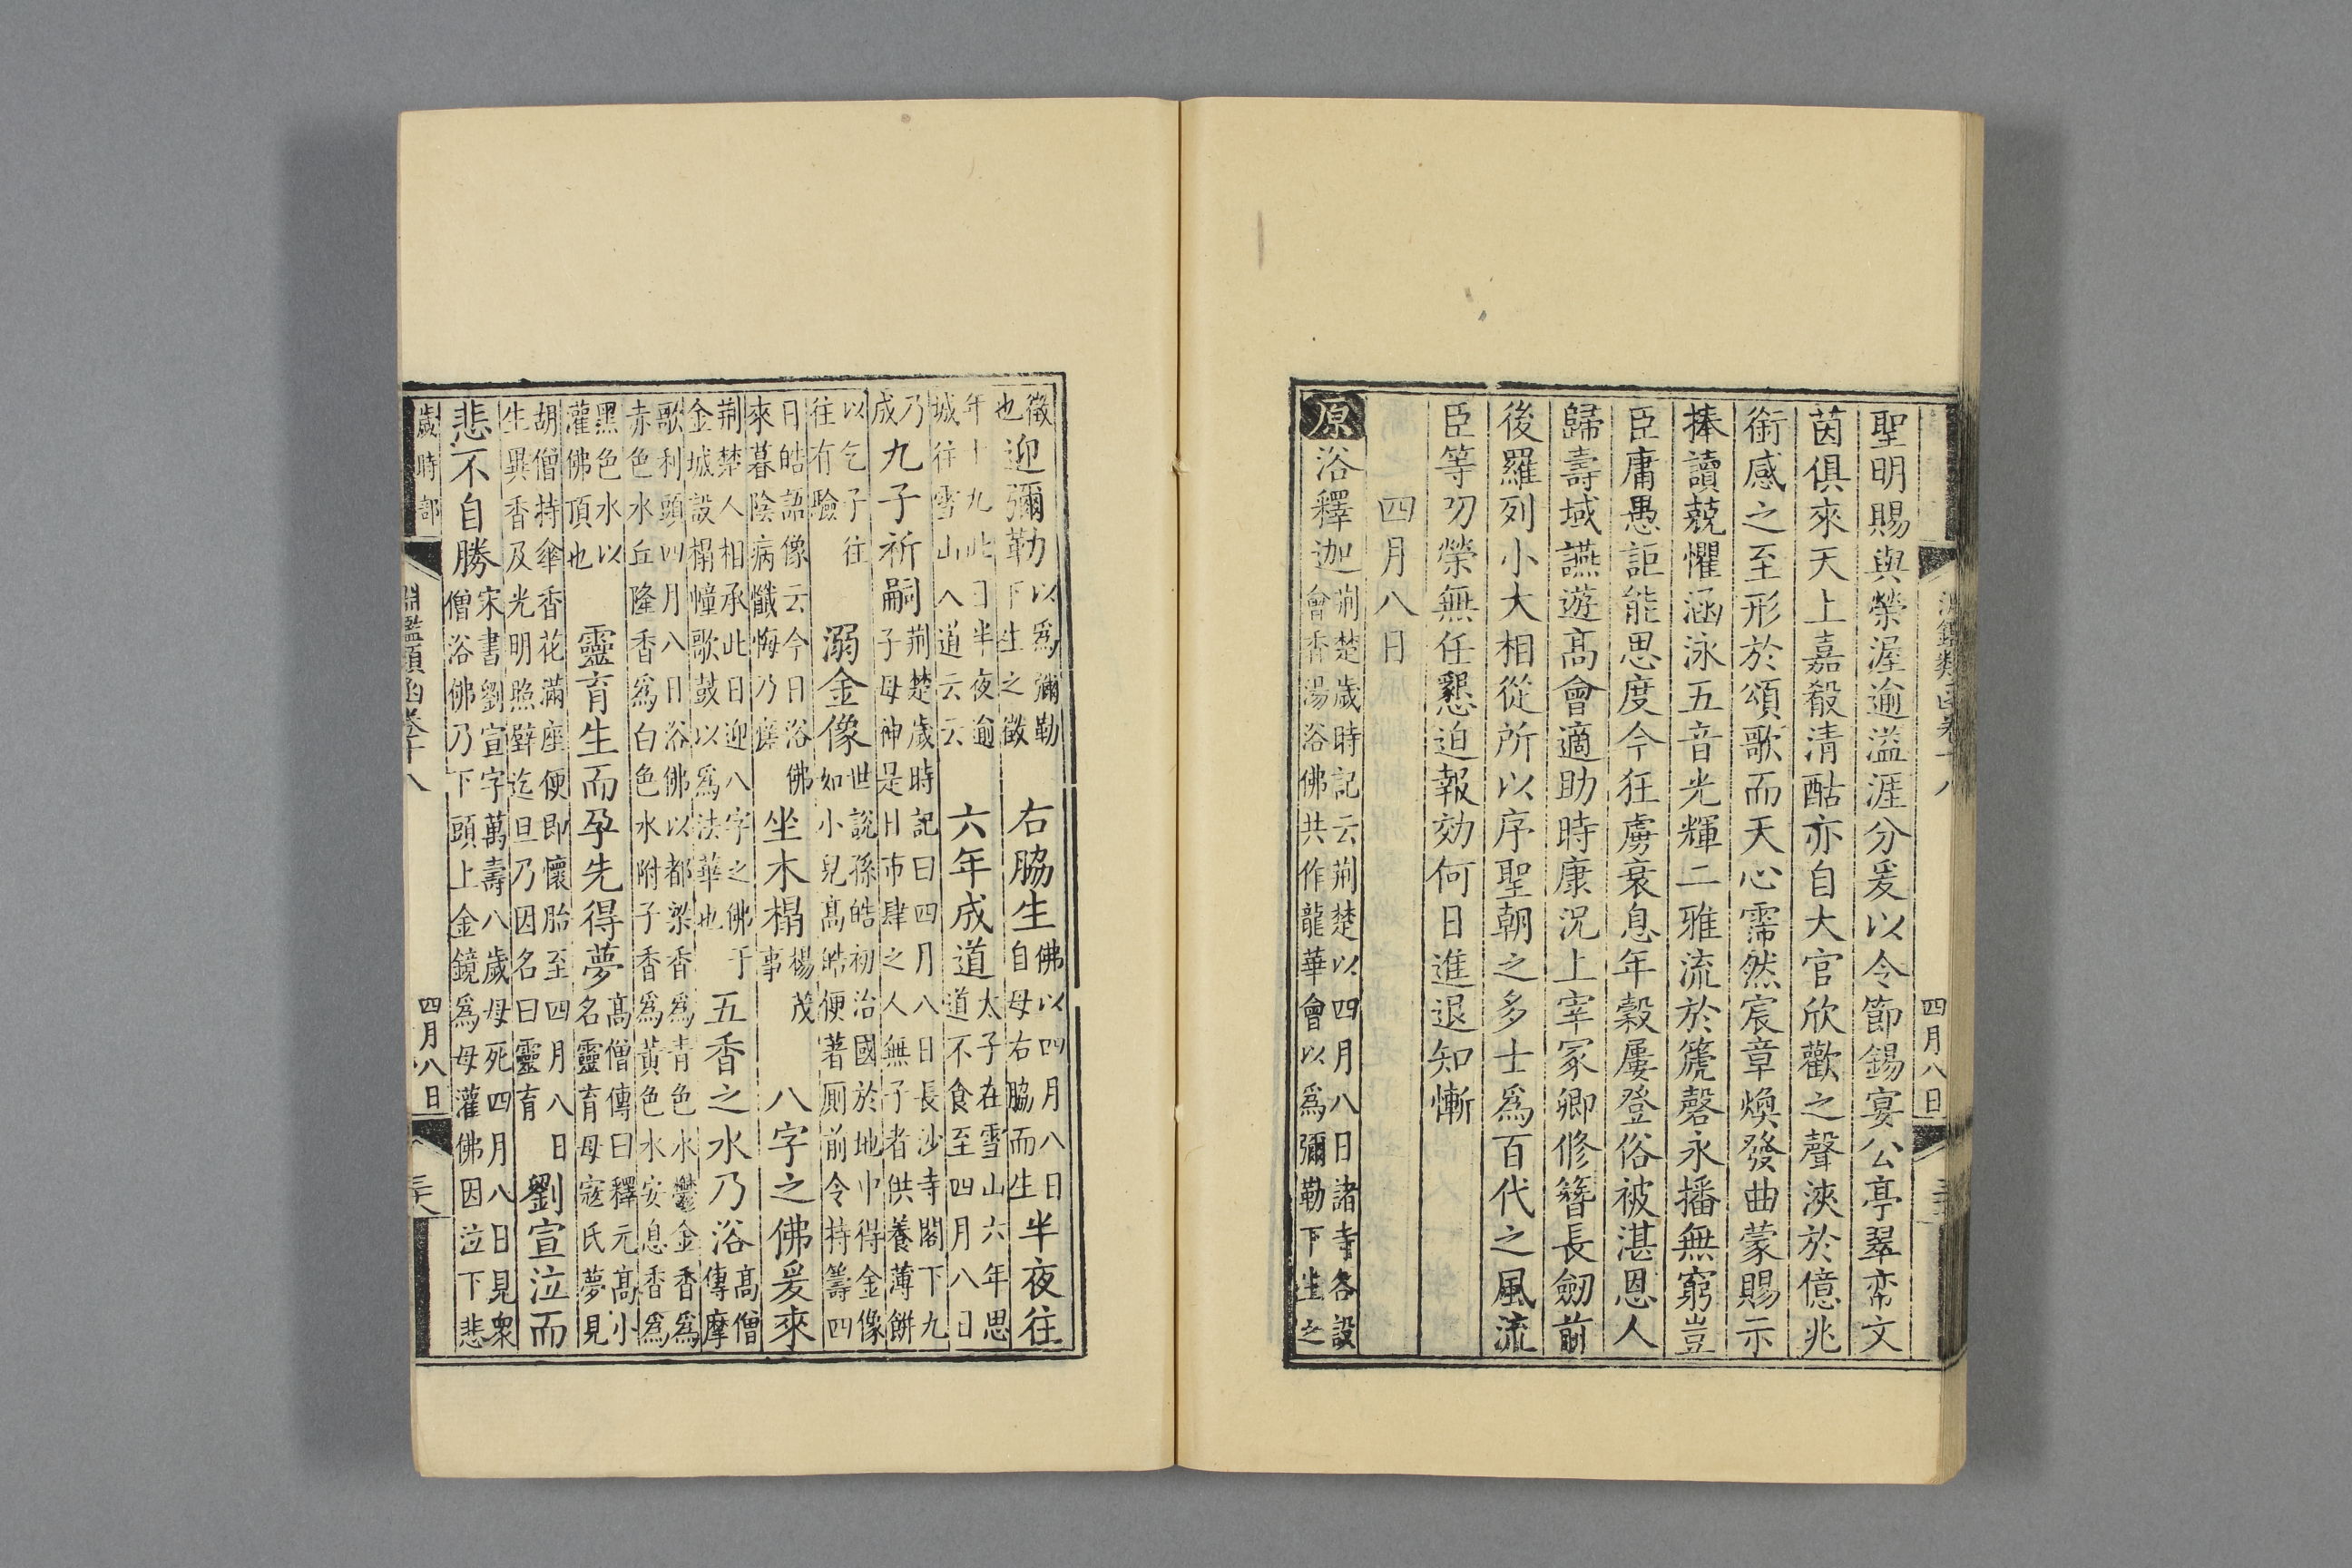 聖明賜與榮渥逾溢涯分爰以令節錫宴公亭翠帟文
茵俱來天上嘉殽清酤亦自大官欣歡之聲浹於億兆
銜感之至形於頌歌而天心霈然宸章煥發曲蒙賜示
捧讀兢懼涵泳五音光輝二雅流於箎磬永播無窮豈
臣庸愚詎能思度今狂虜衰息年穀屢登俗被湛恩人
歸壽域讌遊高會適助時康況上宰冢卿修簪長劒前
後羅列小大相從所以序聖朝之多士爲百代之風流
臣等叨榮無任懇悃迫報効何日進退知慚
四月八日
原浴釋迦荆楚歲時記云荆楚以四月八日諸寺各設
會香湯浴佛共作龍華會以爲彌勒下生之
徵
也迎彌勒以爲彌勒
下生之徵右脇生佛以四月八日
自母右脇而生半夜往
年十九此日半夜逾
城往雪山入道云云六年成道太子在雪山六年思
道不食至四月八日
乃
成九子祈嗣荆楚歲時記曰四月八日長沙寺閣下九
子母神是日市肆之人無子者供養薄餅
以乞子往
往有驗溺金像世說孫皓初治國於地中得金像
如小兒高皓便著厠前令持籌四
日皓語像云今日浴佛
來暮陰病懺悔乃痊坐木榻楊茂
事八字之佛爰來
荆楚人相承此日迎八字之佛于
金城設榻幢歌鼓以爲法華也五香之水乃浴高僧
傳摩
歌利頭四月八日浴佛以都梁香爲青色水鬱金香爲
赤色水丘隆香爲白色水附子香爲黃色水安息香爲
黑色水以
灌佛頂也靈育生而孕先得夢高僧傳曰釋元高小
名靈育母寇氏夢見
胡僧持傘香花滿座便即懷胎至四月八日
生異香及光明照壁迄旦乃因名曰靈育劉宣泣而
悲不自勝宋書劉宣字萬壽八歲母死四月八日見衆
僧浴佛乃下頭上金鏡爲母灌佛因泣下悲
歲時部
淵鑑類函卷十八
四月八日